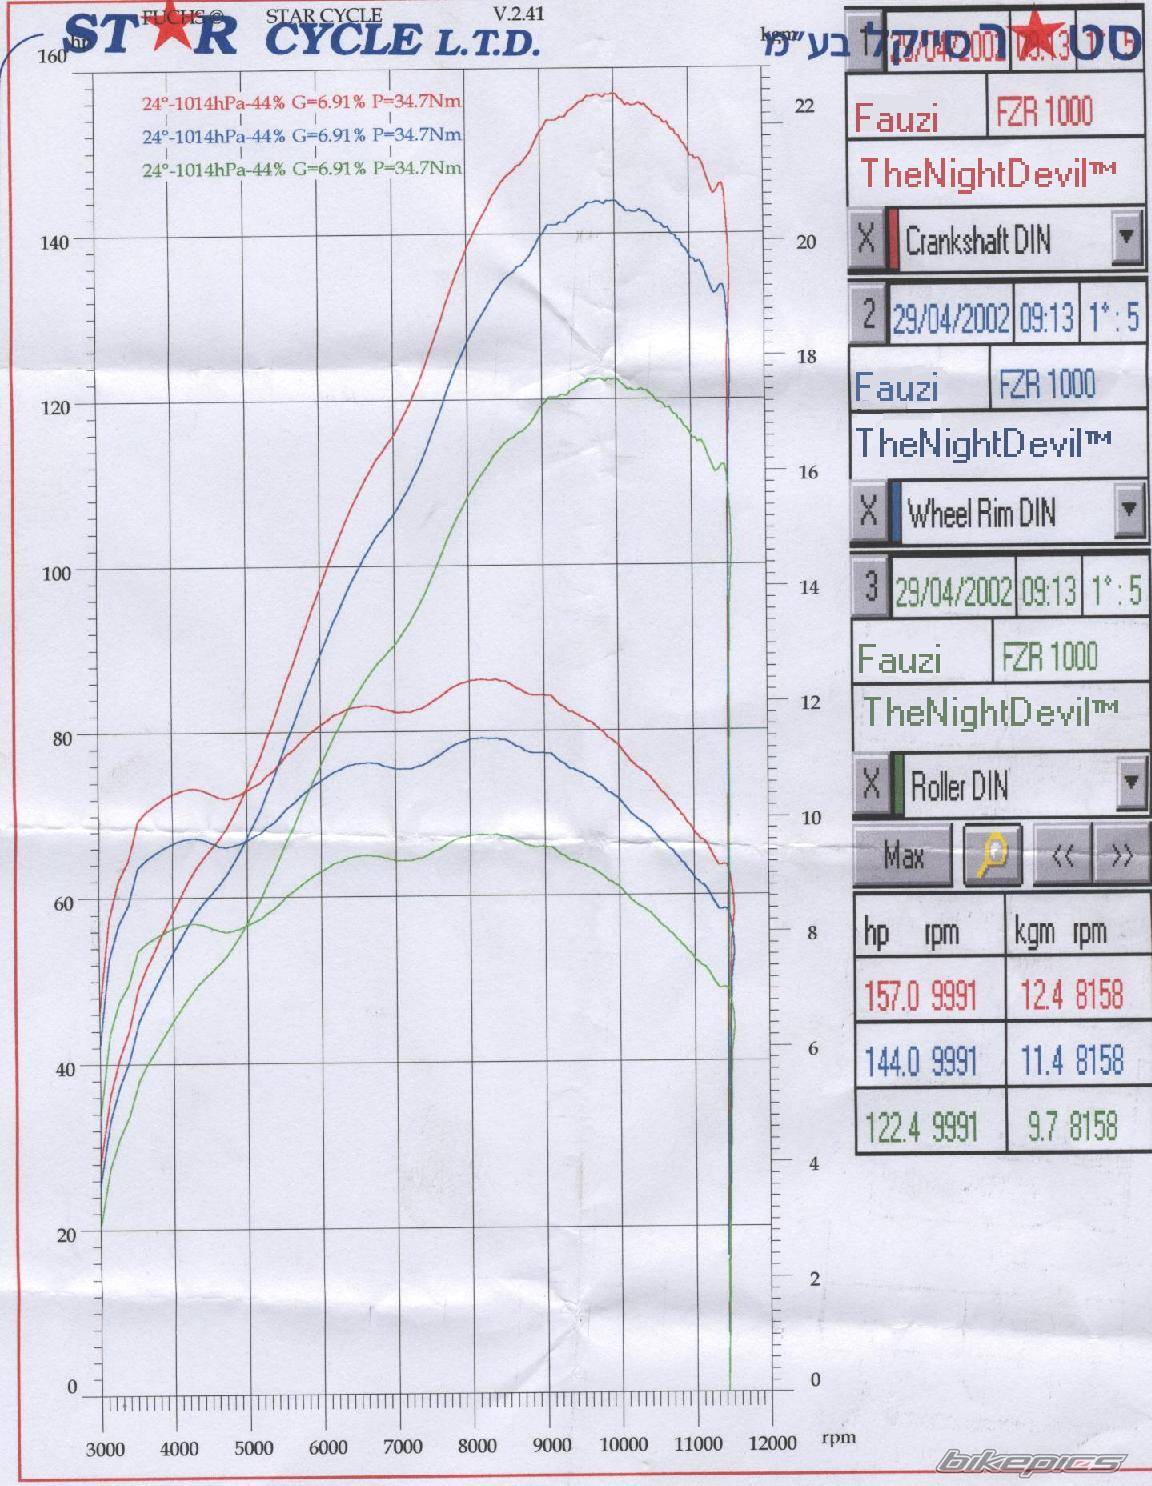 FUCHS © STAR CYCLE V.2.41
ST★R CYCLE L.T.D.
סט★ר סייקל בע״מ
hp
kgm
160
140
120
100
80
60
40
20
0
24°-1014hPa-44% G=6.91% P=34.7Nm
24°-1014hPa-44% G=6.91% P=34.7Nm
24°-1014hPa-44% G=6.91% P=34.7Nm
22
20
18
16
14
12
10
8
6
4
2
0
3000 4000 5000 6000 7000 8000 9000 10000 11000 12000 rpm
1 29/04/2002 09:13 1° : 5
Fauzi FZR 1000
TheNightDevil™
X Crankshaft DIN
2 29/04/2002 09:13 1° : 5
Fauzi FZR 1000
TheNightDevil™
X Wheel Rim DIN
3 29/04/2002 09:13 1° : 5
Fauzi FZR 1000
TheNightDevil™
X Roller DIN
Max << >>
hp rpm kgm rpm
157.0 9991 12.4 8158
144.0 9991 11.4 8158
122.4 9991 9.7 8158
bikepics